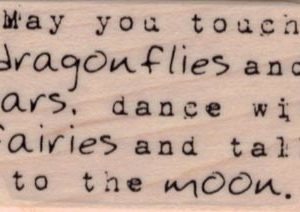 May you touch
dragonflies and
ars. dance wi
fairies and tal
to the moon.